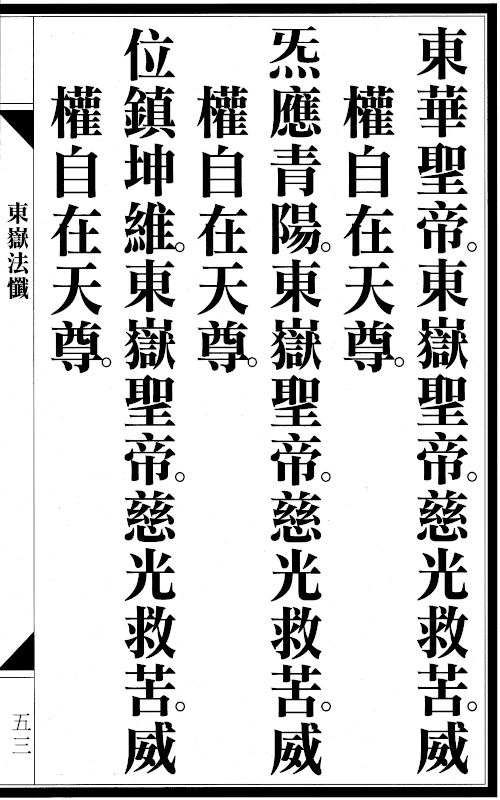 東華聖帝。東嶽聖帝。慈光救苦。威
權自在天尊。
炁應青陽。東嶽聖帝。慈光救苦。威
權自在天尊。
位鎮坤維。東嶽聖帝。慈光救苦。威
權自在天尊。
東嶽法懺
五三